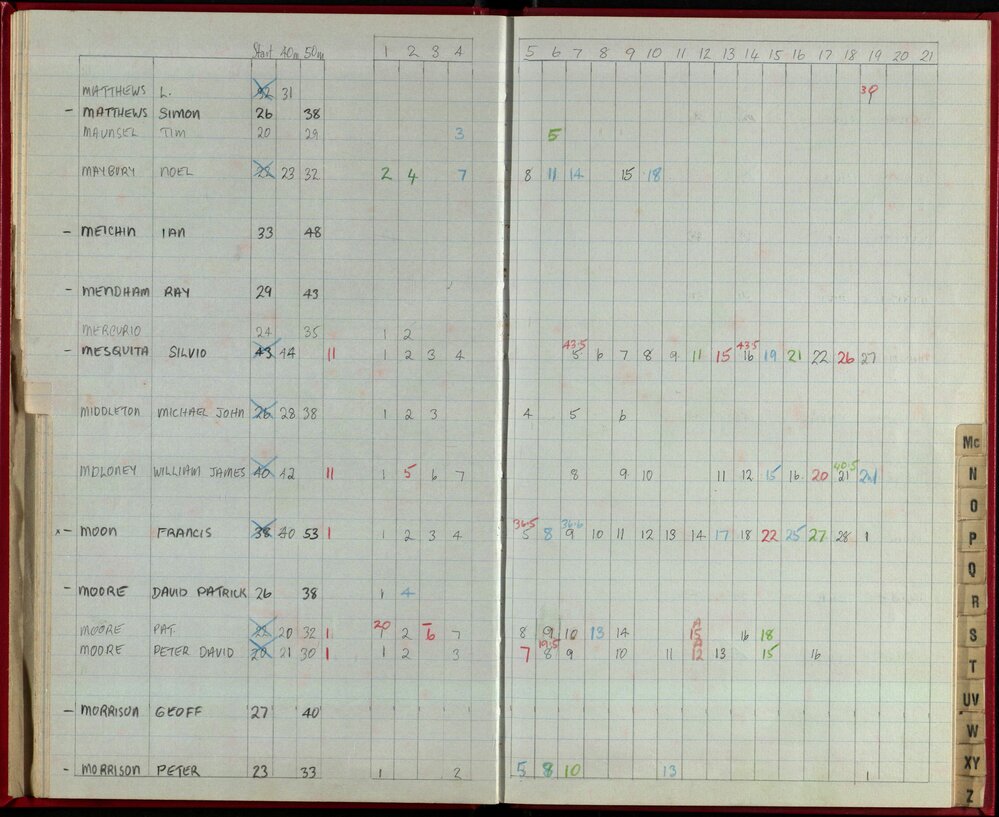 Start 40m 50m 1 2 3 4 5 6 7 8 9 10 11 12 13 14 15 16 17 18 19 20 21
MATTHEWS L. 32 31 39
- MATTHEWS SIMON 26 38
MAUNSEL TIM 20 29 3 5
MAYBURY NOEL 22 23 32 2 4 7 8 11 14 15 18
- METCHIN IAN 33 48
- MENDHAM RAY 29 43
MERCURIO 24 35 1 2
- MESQUITA SILVIO 43 44 11 1 2 3 4 43.5 5 6 7 8 9 11 15 43.5 16 19 21 22 26 27
MIDDLETON MICHAEL JOHN 26 28 38 1 2 3 4 5 6
MOLONEY WILLIAM JAMES 40 42 11 1 5 6 7 8 9 10 11 12 15 16 20 40.5 21
x - MOON FRANCIS 38 40 53 1 1 2 3 4 36.5 5 8 36.6 9 10 11 12 13 14 17 18 22 25 27 28 1
- MOORE DAVID PATRICK 26 38 1 4
MOORE PAT 22 20 32 1 20 1 2 6 7 8 9 10 13 14 A 15 16 18
MOORE PETER DAVID 20 21 30 1 1 2 3 7 19.5 8 9 10 11 A 12 13 15 16
- MORRISON GEOFF 27 40
- MORRISON PETER 23 33 1 2 5 8 10 13 1
Mc
N
O
P
Q
R
S
T
UV
W
XY
Z